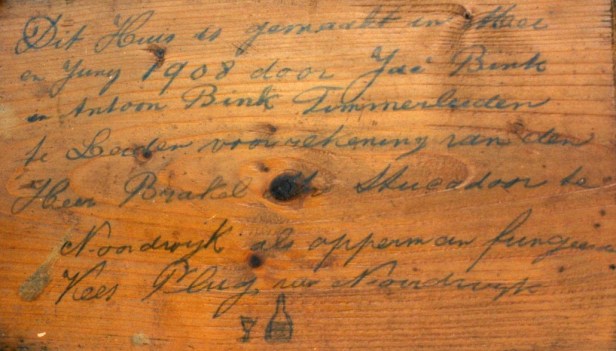 Dit Huis is gemaakt in Mei
en Juny 1908 door Jac Bink
en Antoon Bink Timmerlieden
te Leiden voor rekening van den
Heer Brakel Stucadoor te
Noordwyk als opperman fungeer
Kees Plug Noordwyk